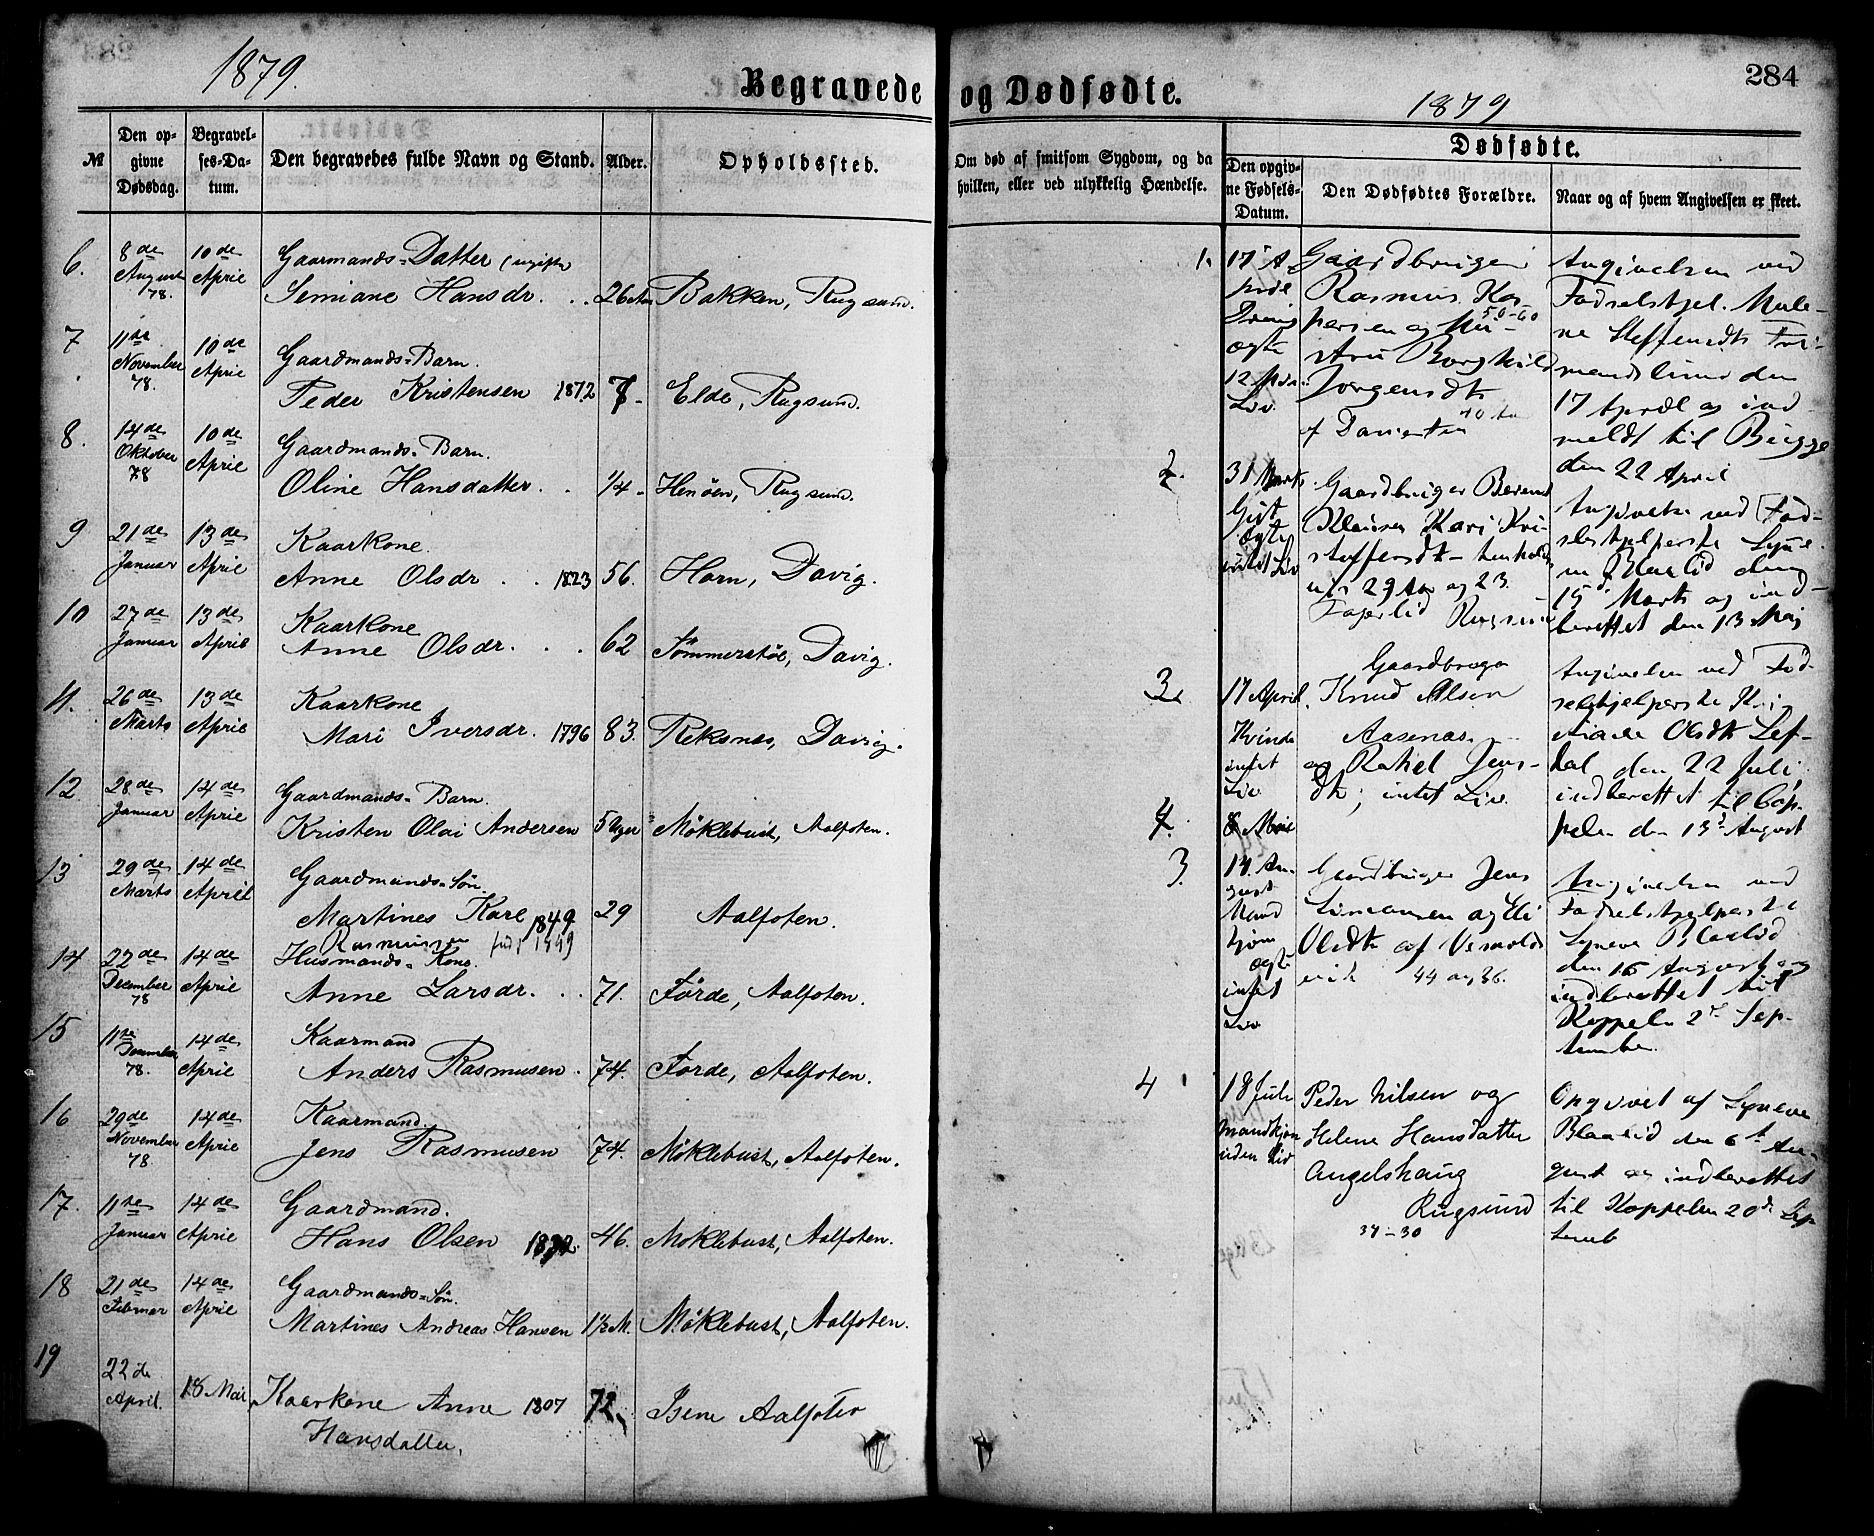 1879.
Begravede
№
Den opgivne Dødsdag.
Begravelses-Datum.
Den begravedes fulde Navn og Stand.
Alder.
Opholdssted.
6. 8de August 78. 10de April Gaarmands-Datter (ugift)
Semiane Hansdr. 26 Bakken, Rugsund.
7 11te November 78. 10de April Gaardmands-Barn.
Peder Kristensen 1872 7 Elde, Rugsund.
8. 14de Oktober 78 10de April Gaardmands-Barn.
Oline Hansdatter. 14 Henøen, Rugsund.
9 21de Januar 13de April Kaarkone.
Anne Olsdr 1823 56. Horn, Davig.
10 27de Januar 13de April Kaarkone
Anne Olsdr. 62 Sømmerstøl, Davig.
11. 26de Marts 13de April Kaarkone
Mari Iversdr. 1796 83. Reksnes, Davig.
12. 28de Januar 14de April Gaardmands-Barn.
Kristen Olai Andersen 5 Uger Møklebust, Aalfoten.
13 29de Marts 14de April Gaardmands-Søn.
Martines Kare 1849 29 Aalfoten.
Rasmussen født 1849
14 22de December 78 14de April Husmands-Kone.
Anne Larsdr. 71. Førde, Aalfoten.
15 11te December 78. 14de April Kaarmand
Anders Rasmusen. 74. Førde, Aalfoten.
16 29de November 78 14de April Kaarmand.
Jens Rasmusen 74. Møklebust, Aalfoten.
17. 11te Januar 14de April Gaardmand.
Hans Olsen 46. Møklebust, Aalfoten.
18 21de Februar 14de April Gaardmands-Søn.
Martines Andreas Hansen 1½ M. Møklebust, Aalfoten.
19 22de April. 18 Mai Kaarkone Anne 1807 72. Isene Aalfoten
Hansdatter.
og Dødfødte.
1879
284
Om død af smitsom Sygdom, og da hvilken, eller ved ulykkelig Hændelse.
Dødfødte.
Den opgivne Fødsels-Datum.
Den Dødfødtes Forældre.
Naar og af hvem Angivelsen er skeet.
1.
17 April
Dreng
ægte
Liv.
Gaardbruger
Rasmus Kaspersen og
50-60
Borghild
Jørgensdt
40
af
Angivelsen ved
Fødselshjel. Malene Steffensdt
den
17 April og indmeldt til Bugge
den 22 April
2.
31 Marts
ægte
Liv
Gaardbruger Berent
Klausen Kari Kristoffersdt
29 Aar og 23.
Fagerlid Rugsund
Angivelse ved Fødselshjelperske
Blaalid den
15 Marts og indberettet den 13 Maj
3.
17 April.
Kvinde
intet
Liv
Gaardbruger
Knud Olsen
Aasenas.
og Rakel Jensdt; intet Liv.
Angivelsen ved Fødselshjelperske
Olsdt Lefdal den 22 Juli,
indberettet til Cappelen den 13de August
4.
8 Mai
3.
14 August
Mandkjøn
ægte
intet
Liv
Gaardbruger Jens
Simonsen og Eli
Olsdt af
44 og 36.
Angivelsen ved
Fødselshjelperske
Syneve Blaalid
den 16 August og
indberettet til
Koppelen 2den September.
4
18 Juli
Mandkjøn
uden Liv
Peder Nilsen og
Helene Hansdatter
Angelshaug
Rugsund
37-30
Opgivet af Syneve
Blaalid den 6t August og indberettet
til Koppelen 20de Septemb